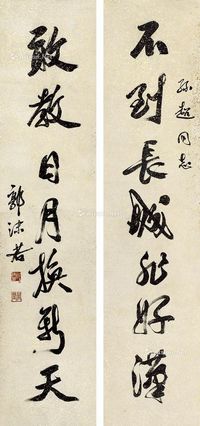 不到長城非好漢
孫超同志
敢教日月換新天
郭沫若